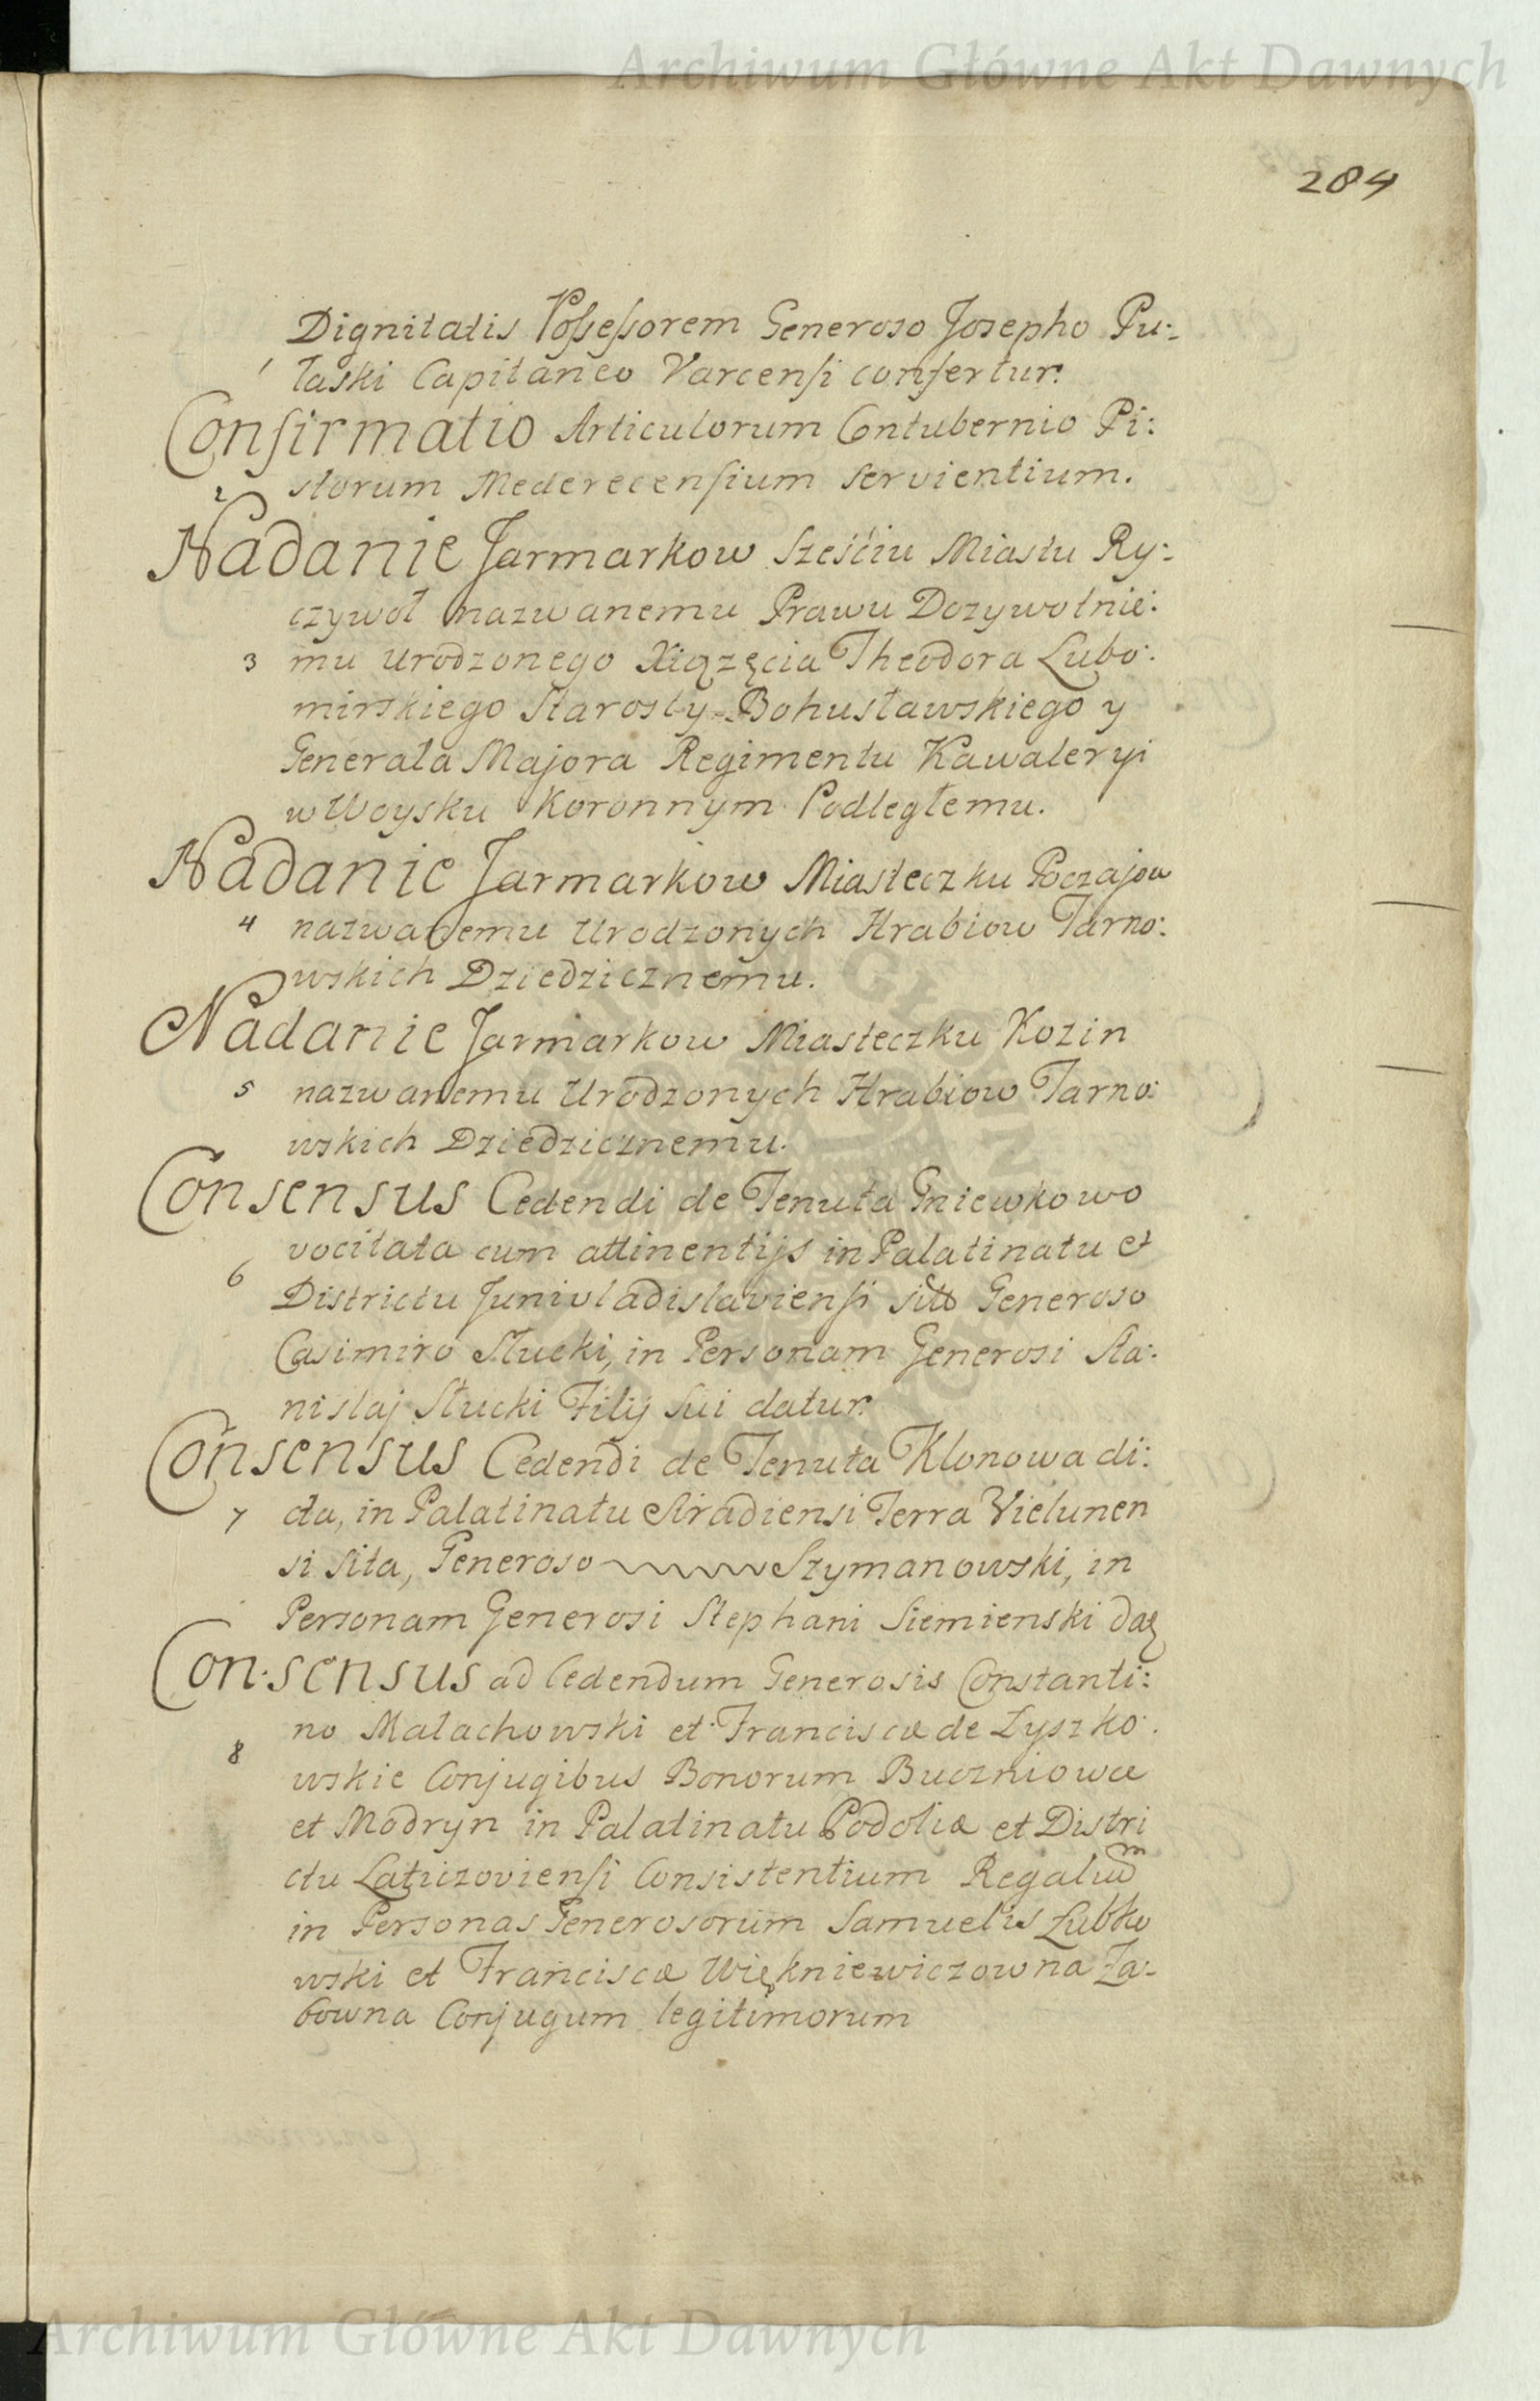 Archiwum Główne Akt Dawnych
284
Dignitatis Possessorem Generoso Josepho Pu:
1 łaski Capitaneo Varcensi confertur.
Confirmatio Articulorum Contubernio Pi:
2 storum Mederecensium servientium.
Nadanie Jarmarkow Sześciu Miastu Ry:
czywoł nazwanemu Prawu Dozywotnie:
3 mu Urodzonego Xiązęcia Theodora Lubo:
mirskiego Starosty Bohusławskiego y
Generała Majora Regimentu Kawaleryi
w Woysku Koronnym Podległemu.
Nadanie Jarmarkow Miasteczku Poczajow
4 nazwanemu Urodzonych Hrabiow Tarno:
wskich Dziedzicznemu.
Nadanie Jarmarkow Miasteczku Kozin
5 nazwanemu Urodzonych Hrabiow Tarno:
wskich Dziedzicznemu.
Consensus Cedendi de Tenuta Gniewkowo
vocitata cum attinentijs in Palatinatu et
6 Districtu Junivladislaviensi Generoso
Casimiro Słucki, in Personam Generosi Sta:
nislaj Słucki Filij Sui datur.
Consensus Cedendi de Tenuta Klonowa di:
7 cta, in Palatinatu Siradiensi Terra Vielunen
si sita, Generoso Szymanowski, in
Personam Generosi Stephani Siemienski dať
Consensus ad Cedendum Generosis Constanti:
no Małachowski et Franciscæ de Łyszko:
8 wskie Conjugibus Bonorum Buczniowce
et Modryn in Palatinatu Podoliæ et Distri
ctu Laticzoviensi Consistentium Regalium
in Personas Generosorum Samuelis Łubko
wski et Franciscæ Więkniewiczowna Za:
bowna Conjugum legitimorum
Archiwum Główne Akt Dawnych